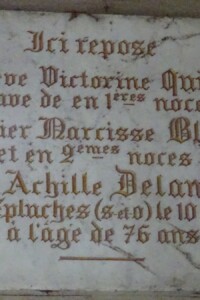 Ici repose
ève Victorine Qui
ave de en 1ères noce
ier Narcisse Bl
et en 2èmes noces
Achille Delan
Epluches (s&o) le 10
à l'âge de 76 ans